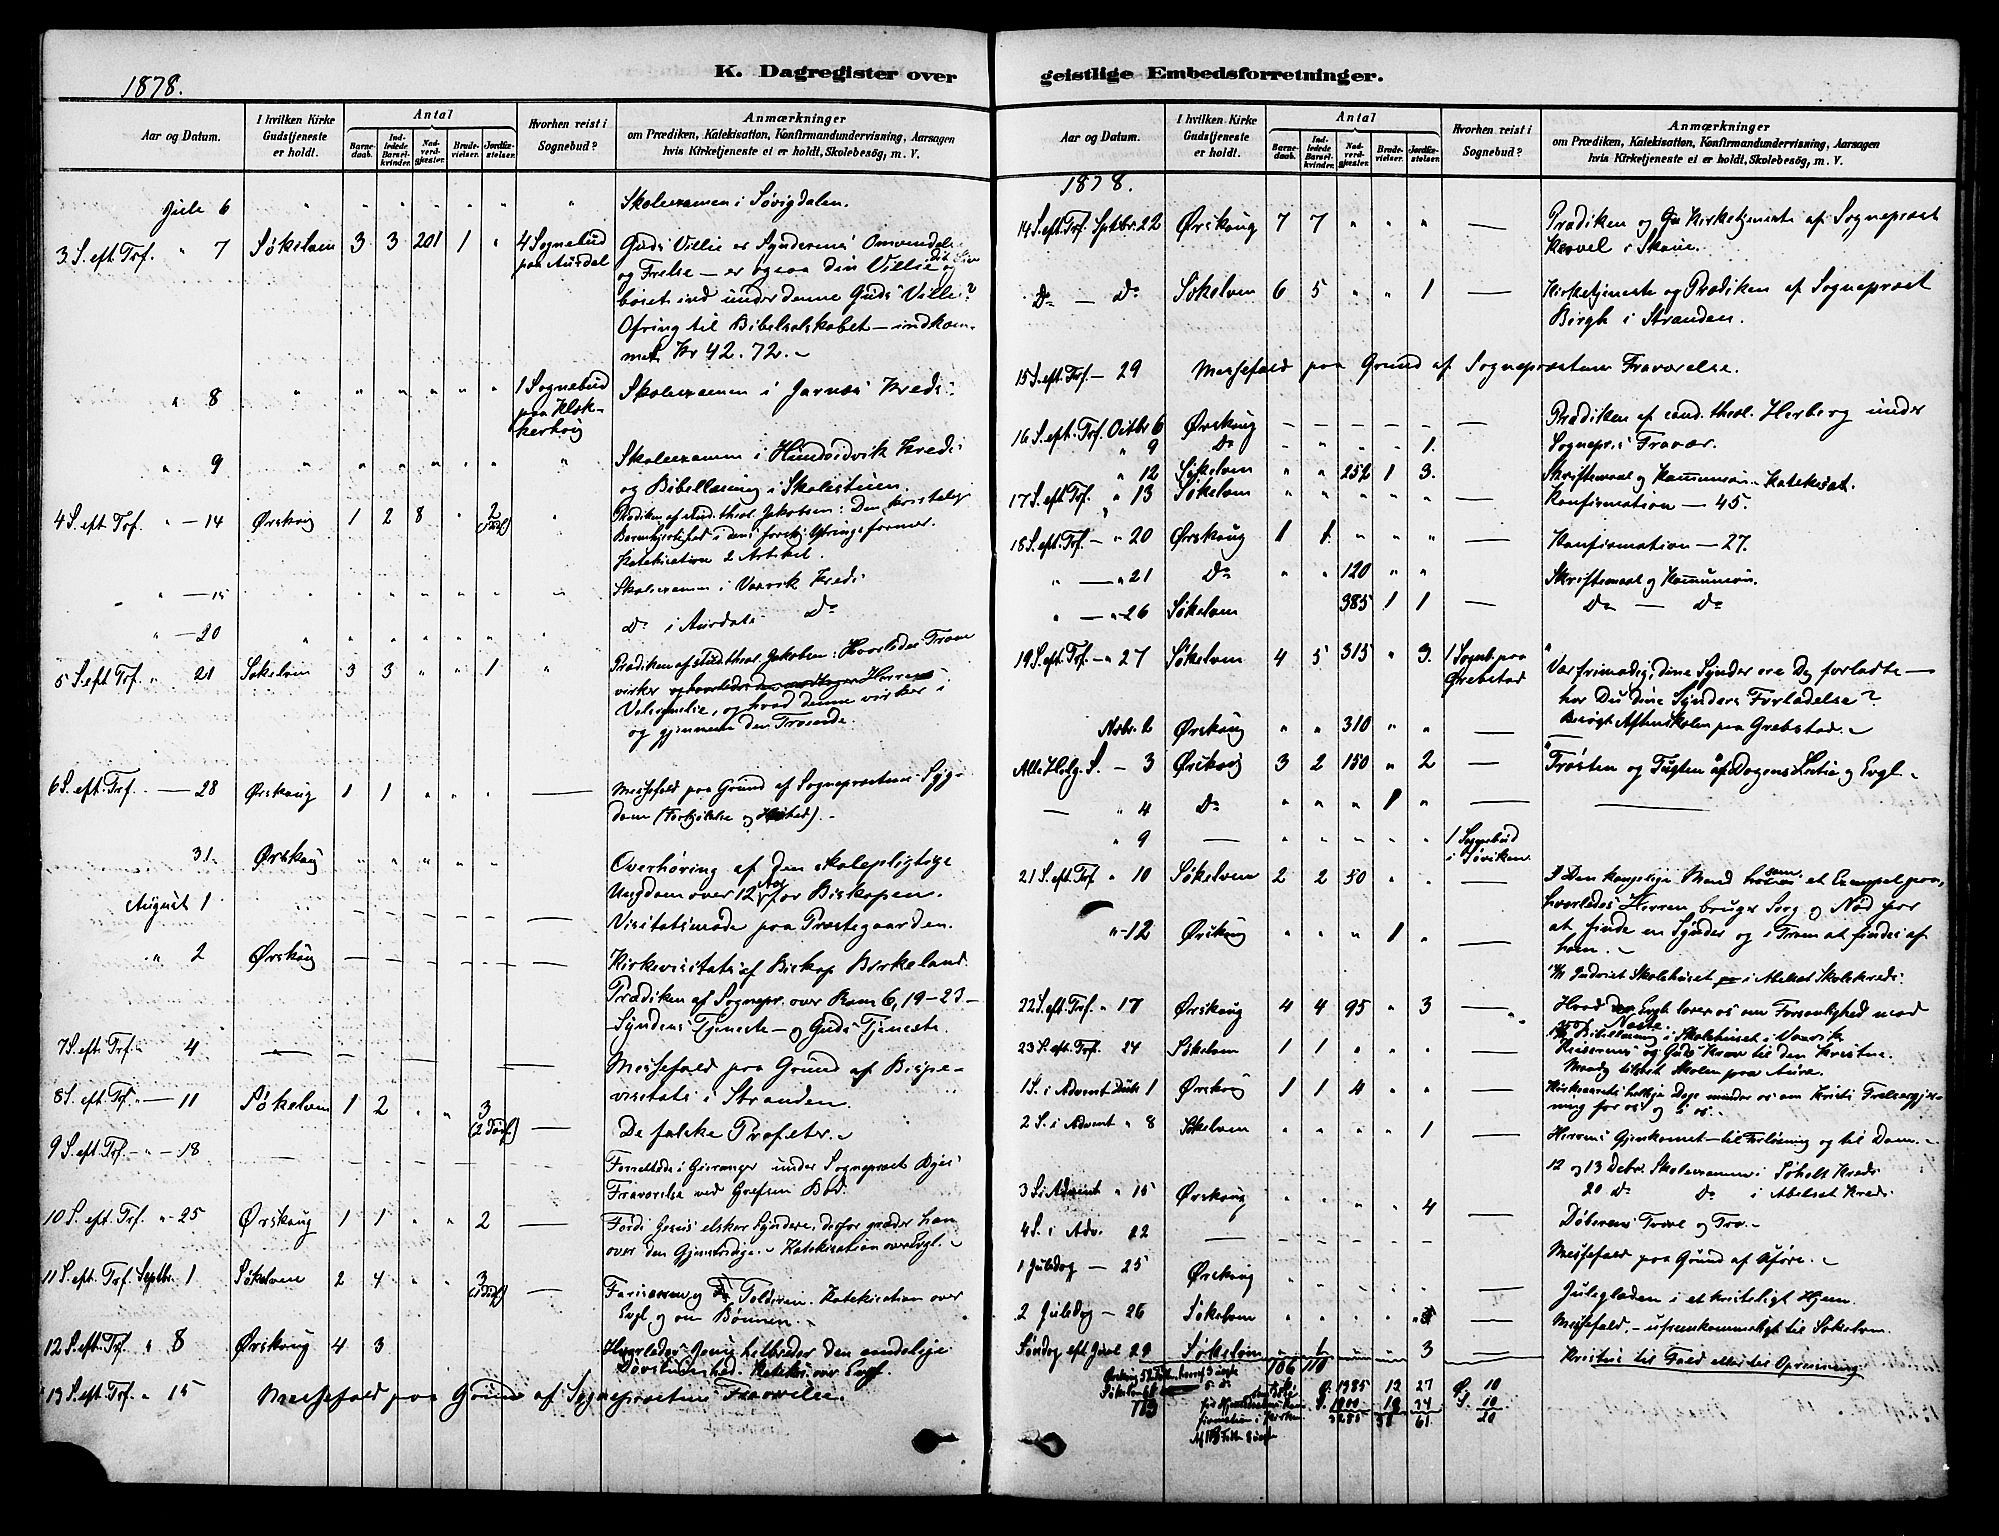 1878.
K. Dagregister over
Aar og Datum.
I hvilken Kirke Gudstjeneste er holdt.
Antal
Barnedaab.
Indledede Barselkvinder.
Nadverdgjester.
Brudevielser.
Jordfæstelser.
Hvorhen reist i Sognebud?
Anmærkninger
om Prædiken, Katekisation, Konfirmandundervisning, Aarsagen
hvis Kirketjeneste ei er holdt, Skolebesög, m. V.
Jule 6 " " " " " " " Skoleexamen i Søvigdalen.
3 S. eft. Trf. " 7 Søkelven 3 3 201 1 " 4 Sognebud Guds Villie er Syndernes Omvendelse
paa Aursdal og Frelse — er ogsaa din Villie
ind under denne Guds Villie?
Ofring til Bibelselskabet — indkom-
met Kr 42. 72. —
" 8 " " " " " " 1 Sognebud Skoleexamen i Jarnes Kreds.
paa Klok-
kerhoug
" 9 " " " " " " " Skoleexamen i Hundeidvik Kreds
og Bibellæsning i Skolestuen.
4 S. eft Trf. " — 14 Ørskoug 1 2 8 " 2 " Prædiken af stud. theol. Jakobsen: Den kristelige
Barmhjertighed i dens forskj. Ytringsformer.
Katekisation 2 Artikel.
" — 15 Skoleexamen i Vaagvik Kreds
" — 20 " " " " " " " Do i Aurdale Do
5 S. eft Trf. " 21 Søkelven 3 3 " " 1 " Prædiken af stud. theol. Jakobsen: Hvorledes Troen
virker
Velsignelse, og hvad denne virker i
og gjennem den Troende.
6 S. eft. Trf. — 28 Ørskoug 1 1 " " " — Messefald paa Grund af Sognepræstens Syg-
dom (Forkjølelse og Hæshed). —
31. Ørskoug " " " " " Overhøring af den skolepligtige
Ungdom over 12 Aar for Biskopen.
August 1 — — — — — — — Visitatsmøde paa Præstegaarden.
" 2 Ørskoug — — — — — — Kirkevisitats af Biskop Birkeland.
Prædiken af Sognepr. over Rom 6, 19–23 –
Syndens Tjeneste — og Guds Tjeneste.
7 S. eft. Trf. " 4 — — — — Messefald paa Grund af Bispe-
visitats i Stranden.
8 S. eft Trf. " — 11 Søkelven 1 2 " " 3 — De falske Profeter. —
9 S. eft Trf. — " — 18 — — — Forrettede i Geiranger under Sognepræst
Fraværelse ved Grefsen Bad.
10 S. eft. Trf. " 25 Ørskoug 1 1 " " 2 — Fordi Jesus elsker Syndere, derfor græder han
over den Gjenstridige. — Katekisation over Evgl. —
11 S. eft. Trf. Septbr. 1 Søkelven 2 4 " " 3 — Farisæeren og Tolderen. Katekisation over
Evgl og om Bønnen. —
12 S. eft. Trf. " 8 Ørskoug 4 3 Hvorledes Jesus helbreder den aandelige
Døvstumhed. Kateks. over Evgl.
13 S. eft. Trf. " 15 Messefald paa Grund af Sognepræstens Fraværelse.
geistlige Embedsforretninger.
Aar og Datum.
I hvilken Kirke Gudstjeneste er holdt.
Antal
Barnedaab.
Indledede Barselkvinder.
Nadverdgjester.
Brudevielser.
Jordfæstelser.
Hvorhen reist i Sognebud?
Anmærkninger
om Prædiken, Katekisation, Konfirmandundervisning, Aarsagen
hvis Kirketjeneste ei er holdt, Skolebesög, m. V.
1878.
14 S. eft. Trf. Sptbr. 22 Ørskoug 7 7 " " " — Prædiken og Kirketjeneste af Sognepræst
i Skaue.
Do — Do Søkelven 6 5 " " 1 — Kirketjeneste og Prædiken af Sognepræst
Birgh i Stranden.
15 S. eft. Trf. — 29 Messefald paa Grund af Sognepræstens Fraværelse.
16 S. eft. Trf. Octbr 6 Ørskoug — — — — — — Prædiken af cand. theol. Herberg under
Sognepr.s Fravær.
" 9 Do " " " " 1.
" 12 Søkelven " " 252 1 3. Skriftemaal og Kommunion. Kateksat.
17 S. eft Trf. " 13 Søkelven " " " " " — Konfirmation — 45.
18 S. eft. Trf. — " 20 Ørskoug 1 1 " " " — Konfirmation — 27.
" — " 21 Do " " 120 " " Skriftemaal og Kommunion.
" — " 26 Søkelven 385 1 1 — Do — Do
19 S. eft Trf. — " 27 Søkelven 4 5 315 " 3. 1 Sogneb. paa Vær frimodig, dine Synder ere Dig forladte —
Grebstad har Du dine Synders Forladelse?
Besøgt Aftenskolen paa Grebstad. —
Novbr. 2 Ørskoug " " 310 " " —
Alle Helg. S. — 3 Ørskoug 3 2 150 " 2 — Trøsten og Tugten af Dagens Lectie og Evgl —
— " 4 Do " " " 1 " — —
" 9 — " " " " " 1 Sognebud
i Søviken.
21 S. eft. Trf " 10 Søkelven 2 2 50 " " — I Den kongelige Mand som et Exempel paa,
hvorledes Herren bruger Sorg og Nød for
at finde en Synder og i Troen at findes af
ham. —
" — 12 Ørskoug " " " 1 " —
Indviet Skolehuset i Abelset Skolekreds.
22 S. eft Trf. " 17 Ørskoug 4 4 95 " 3 — Hvad Evgl. lærer os om Forsonlighed mod
Næste.
Bibellæsning i Skolehuset i Vaagvik
23 S. eft. Trf. 24 Søkelven 1 1 " " " — Keiserens og Guds Krav til den Kristne.
Skolen paa Aure.
1 S. i Advent Decbr 1 Ørskoug 1 1 4 " " — Kirkeaarets hellige Dage minder os om Kristi Frelsergjer-
ning for os og i os. —
2 S. i Advent " 8 Søkelven 1 — Herrens Gjenkomst — til Forløsning og til Dom. —
12 og 13 Debr. Skoleexamen i Søholt Kreds
20 Do Do i Abelset Kreds
3 S. i Advent " 15 Ørskoug " " " " 4 — Døberens Tvivl og Tro. —
4 S. i Adv. 22 — — — — — — Messefald paa Grund af Uføre. —
1 Juledag — 25 Ørskoug " " " " " — Juleglæden i et kristeligt Hjem.
2 Juledag — 26 Søkelven " " " " — Messefald, — ufremkommeligt til Søkelven.
Søndag eft Juul 29 Søkelven " 1 " " 3 — Kristus til Fald eller til Opreisning
106 110
Ø. 1385 12 27 Ø. 10
S. 1900 34 S. 10
3285 61 20
113